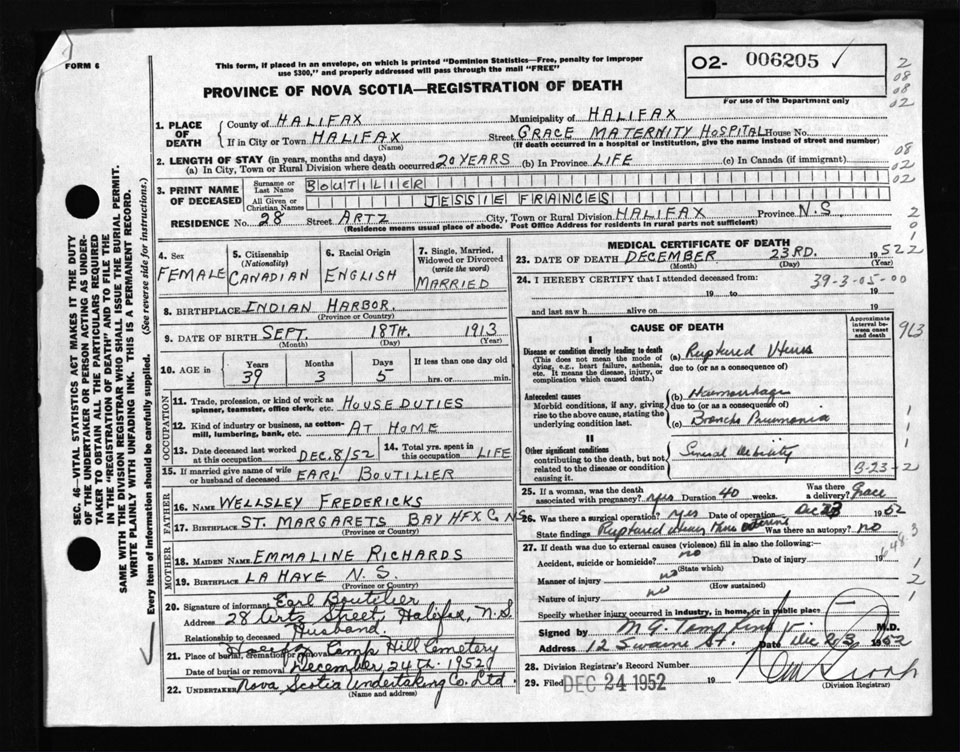 FORM 6
This form, if placed in an envelope, on which is printed "Dominion Statistics—Free, penalty for improper
use $300," and properly addressed will pass through the mail "FREE"
PROVINCE OF NOVA SCOTIA—REGISTRATION OF DEATH
O2- 006205 ✓
For use of the Department only
2
08
08
02
08
02
02
2
0
1
2
SEC. 46—VITAL STATISTICS ACT MAKES IT THE DUTY
OF THE UNDERTAKER OR PERSON ACTING AS UNDER-
TAKER TO OBTAIN ALL THE PARTICULARS REQUIRED
IN THE "REGISTRATION OF DEATH" AND TO FILE THE
SAME WITH THE DIVISION REGISTRAR WHO SHALL ISSUE THE BURIAL PERMIT.
WRITE PLAINLY WITH UNFADING INK. THIS IS A PERMANENT RECORD.
Every item of information should be carefully supplied. (See reverse side for instructions.)
1. PLACE OF DEATH
County of HALIFAX Municipality of HALIFAX
If in City or Town HALIFAX Street GRACE MATERNITY HOSPITAL House No.
(Name) (If death occurred in a hospital or institution, give the name instead of street and number)
2. LENGTH OF STAY (in years, months and days)
(a) In City, Town or Rural Division where death occurred 20 YEARS (b) In Province LIFE (c) In Canada (if immigrant)
3. PRINT NAME OF DECEASED
Surname or Last Name BOUTILIER
All Given or Christian Names JESSIE FRANCES
RESIDENCE No. 28 Street ARTZ City, Town or Rural Division HALIFAX Province N.S
(Residence means usual place of abode. Post Office Address for residents in rural parts not sufficient)
4. Sex
FEMALE
5. Citizenship
(Nationality)
CANADIAN
6. Racial Origin
ENGLISH
7. Single, Married,
Widowed or Divorced
(write the word)
MARRIED
8. BIRTHPLACE INDIAN HARBOR
(Province or Country)
9. DATE OF BIRTH SEPT. 18TH. 1913
(Month) (Day) (Year)
10. AGE in
Years Months Days If less than one day old
39 3 5 hrs. or min.
OCCUPATION
11. Trade, profession, or kind of work as
spinner, teamster, office clerk, etc. HOUSE DUTIES
12. Kind of industry or business, as cotton-
mill, lumbering, bank, etc. AT HOME
13. Date deceased last worked
at this occupation DEC. 8/52
14. Total yrs. spent in
this occupation LIFE
15. If married give name of wife
or husband of deceased EARL BOUTILIER
FATHER
16. Name WELLSLEY FREDERICKS
17. Birthplace ST. MARGARETS BAY HFX C. NS
(Province or Country)
MOTHER
18. MAIDEN NAME EMMALINE RICHARDS
19. BIRTHPLACE LA HAVE N.S.
(Province or Country)
20. Signature of informant Earl Boutilier
Address 28 Artz Street, Halifax, N.S.
Relationship to deceased Husband.
21. Place of burial, cremation or removal Halifax Camp Hill Cemetery
Date of burial or removal December 24th. 1952
22. UNDERTAKER Nova Scotia Undertaking Co. Ltd.
(Name and address)
MEDICAL CERTIFICATE OF DEATH
23. DATE OF DEATH DECEMBER 23RD. 1952
(Month) (Day) (Year)
24. I HEREBY CERTIFY that I attended deceased from:
39-3-05-00
19 to 19
and last saw h alive on 19
CAUSE OF DEATH
Approximate
interval between
onset and death
913
I
Disease or condition directly leading to death
(This does not mean the mode of
dying, e.g., heart failure, asthenia,
etc. It means the disease, injury, or
complication which caused death.)
(a) Ruptured Uterus
due to (or as a consequence of)
Antecedent causes
Morbid conditions, if any, giving
rise to the above cause, stating the
underlying condition last.
(b) Haemorrhage
due to (or as a consequence of)
(c) Broncho Pneumonia
II
Other significant conditions
contributing to the death, but not
related to the disease or condition
causing it.
General debility
B-23-2
1
1
25. If a woman, was the death
associated with pregnancy? yes Duration 40 weeks. Was there
a delivery? Grace
26. Was there a surgical operation? yes Date of operation Dec 1952
State findings Ruptured uterus, Was there an autopsy? no
648 3
27. If death was due to external causes (violence) fill in also the following:—
Accident, suicide or homicide? no Date of injury 19
(State which)
Manner of injury no
(How sustained)
Nature of injury no
1
2
1
Specify whether injury occurred in industry, in home, or in public place
Signed by M.G. Tompkins M.D.
Address 12 Swaine St. Date Dec 23 1952
28. Division Registrar's Record Number
29. Filed DEC 24 1952 19
(Division Registrar)